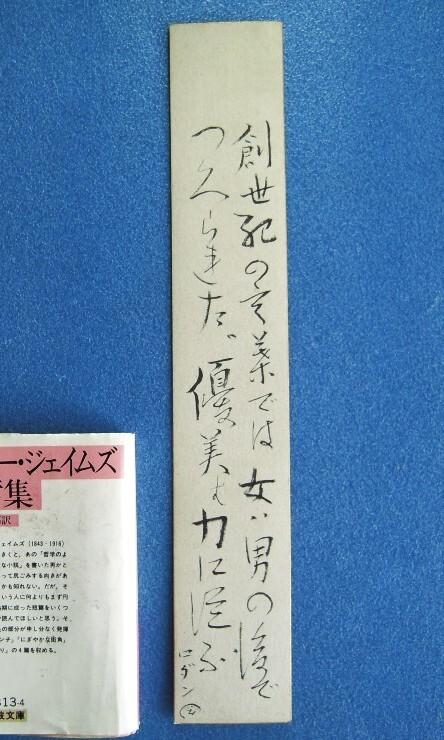 創世記の言葉では女ハ男の後で
つくられた゛優美も力に従ふ
ロダン
ー・ジェイムズ
集
訳
ェイムズ(1843‐1916)
きくと，あの「哲学のよ
な小説」を書いた男かと
って尻ごみする向きがあ
かも知れない。だが，そ
いう人に何よりもまず円
期に成った短篇をいくつ
読んでほしいと思う。そ
の部分が申し分なく発揮
ンチ」「にぎやかな街角」
り」の4篇を収める。
313-4
波文庫